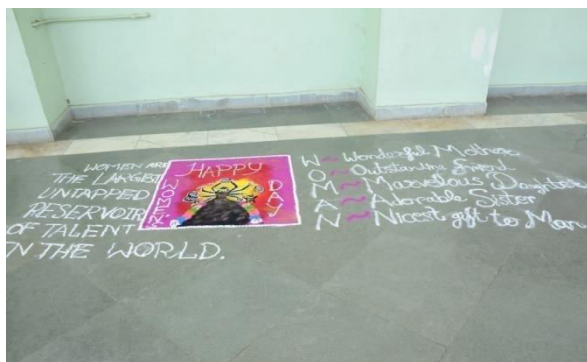 WOMEN ARE
THE LARGEST
UNTAPPED
RESERVOIR
OF TALENT
IN THE WORLD.
HAPPY
WOMEN'S
DAY
W ~ Wonderful Mother
O ~ Outstanding Friend
M ~ Marvellous Daughter
A ~ Adorable Sister
N ~ Nicest gift to Man